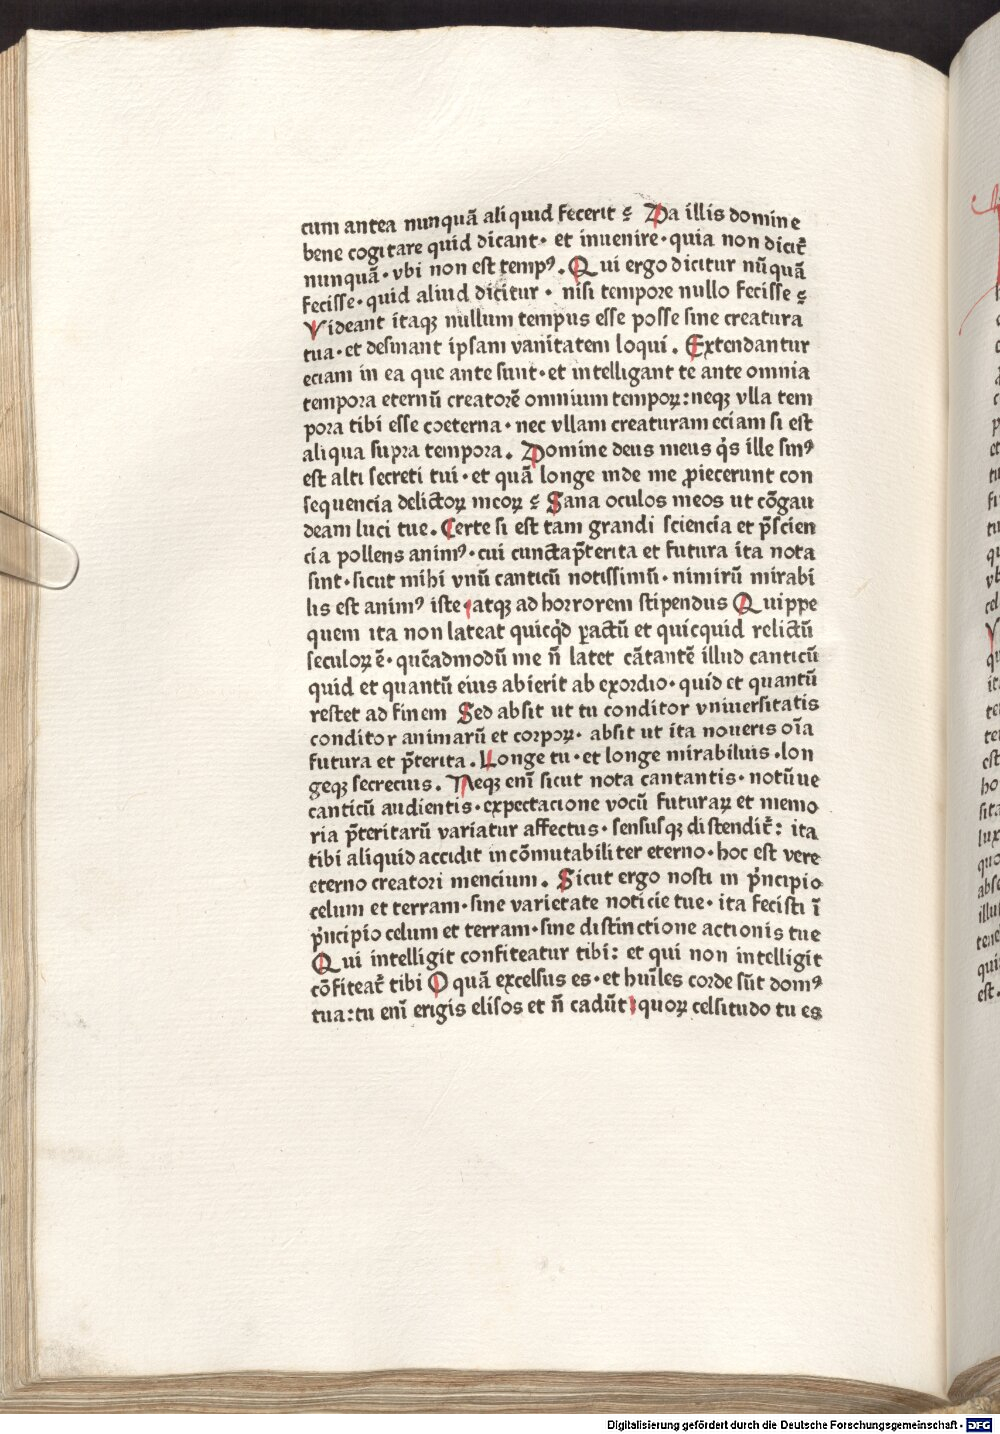 cum antea nunquā aliquid fecerit ? Da illis domine
bene cogitare quid dicant· et inuenire· quia non dicit᷑
nunquā· vbi non est tempꝰ. Qui ergo dicitur nūquā
fecisse· quid aliud dicitur · nisi tempore nullo fecisse ?
Videant itaqꝫ nullum tempus esse posse sine creatura
tua· et desinant ipsam vanitatem loqui. Extendantur
eciam in ea que ante sunt· et intelligant te ante omnia
tempora eternū creatorē omnium tempoꝝ: neqꝫ vlla tem
pora tibi esse coeterna· nec vllam creaturam eciam si est
aliqua supra tempora. Domine deus meus q̇s ille sinꝰ
est alti secreti tui· et quā longe inde me ꝓiecerunt con
sequencia delictoꝝ meoꝝ ? Sana oculos meos ut cōgau
deam luci tue. Certe si est tam grandi sciencia et p̄scien
cia pollens animꝰ· cui cuncta p̄terita et futura ita nota
sint· sicut mihi vnū canticū notissimū· nimirū mirabi
lis est animꝰ iste· atqꝫ ad horrorem stipendus Quippe
quem ita non lateat quicq̇d ꝑactū et quicquid relictū
seculoꝝ ē· quēadmodū me n̄ latet cātantē illud canticū
quid et quantū eius abierit ab exordio· quid et quantū
restet ad finem Sed absit ut tu conditor vniuersitatis
conditor animarū et corpoꝝ· absit ut ita noueris oīa
futura et p̄terita. Longe tu· et longe mirabilius· lon
geqꝫ secrecius. Neqꝫ enī sicut nota cantantis· notūue
canticū audientis· expectacione vocū futuraꝝ et memo
ria p̄teritarū variatur affectus· sensusqꝫ distendit᷑: ita
tibi aliquid accidit incōmutabiliter eterno· hoc est vere
eterno creatori mencium. Sicut ergo nosti in p̍ncipio
celum et terram· sine varietate noticie tue· ita fecisti ī
p̍ncipio celum et terram· sine distinctione actionis tue
Qui intelligit confiteatur tibi: et qui non intelligit
cōfiteat᷑ tibi O quā excelsus es· et hūiles corde sūt domꝰ
tua: tu enī erigis elisos et n̄ cadūt quoꝝ celsitudo tu es
Digitalisierung gefördert durch die Deutsche Forschungsgemeinschaft - DFG